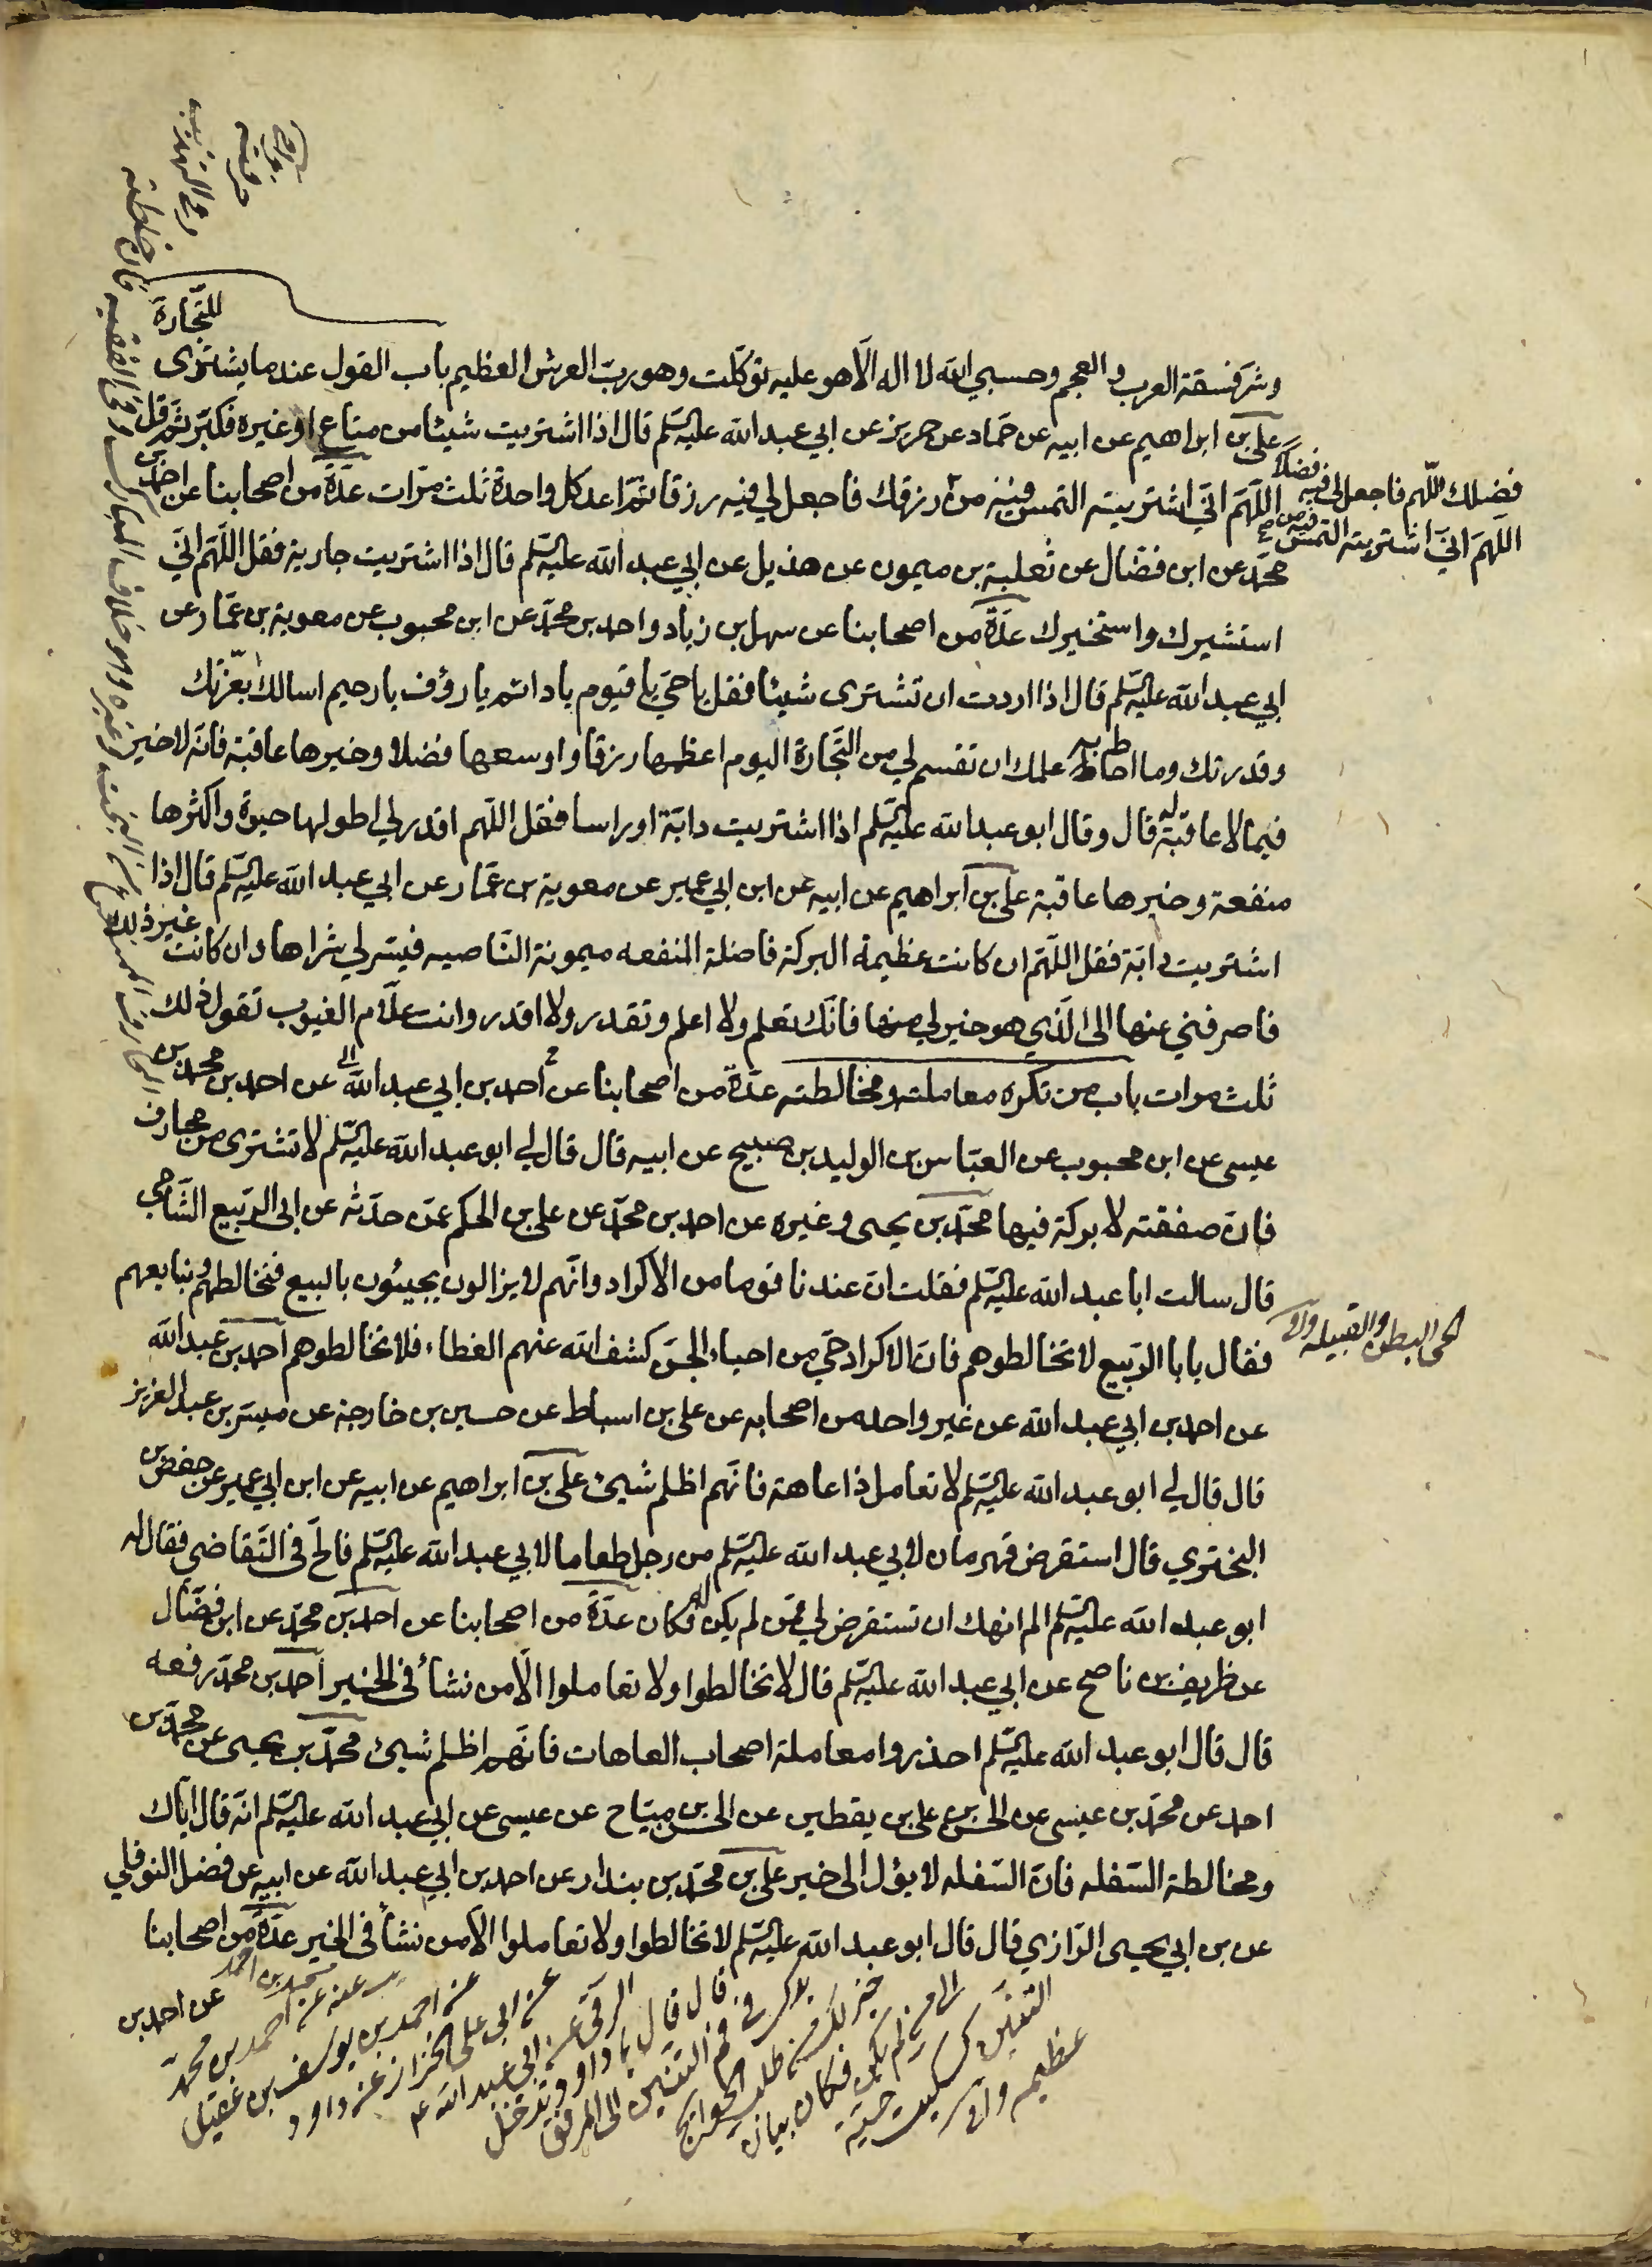 للتجارة
وشر فسقة العرب و العجم وحسبي الله لا اله الا هو عليه توكلت وهو رب العرش العظيم باب القول عند ما يشترى
علي بن ابراهيم عن ابيه عن حماد عن حريز عن ابي عبد الله عليه السلم قال اذا اشتريت شيئا من متاع او غيره فكبر ثم قل
اللهم اني اشتريته التمس فيه من رزقك فاجعل لي فيه رزقا ثم اعد كل واحدة ثلث مرات عدة من اصحابنا عن احمد بن
فضلك اللهم فاجعل لي فيه فضلا
اللهم اني اشتريته التمس فيه من
محمد عن ابن فضال عن ثعلبة بن ميمون عن هذيل عن ابي عبد الله عليه السلم قال اذا اشتريت جارية فقل اللهم اني
استشيرك واستخيرك عدة من اصحابنا عن سهل بن زياد واحمد بن محمد عن ابن محبوب عن معوية بن عمار عن
ابي عبد الله عليه السلم قال اذا اردت ان تشترى شيئا فقل يا حي يا قيوم يا دائم يا رؤف يا رحيم اسالك بعزتك
وقدرتك وما احاط به علمك ان تقسم لي من التجارة اليوم اعظمها رزقا واوسعها فضلا وخيرها عاقبة فانه لا خير
فيما لا عاقبة له قال وقال ابو عبد الله عليه السلم اذا اشتريت دابة او راسا فقل اللهم اقدر لي اطولها حيوة واكثرها
منفعة وخيرها عاقبة علي بن ابراهيم عن ابيه عن ابن ابي عمير عن معوية بن عمار عن ابي عبد الله عليه السلم قال اذا
اشتريت دابة فقل اللهم ان كانت عظيمة البركة فاضلة المنفعه ميمونة الناصيه فيسر لي شراها وان كانت غير ذلك
فاصرفني عنها الى الذي هو خير لي منها فانك تعلم ولا اعلم وتقدر ولا اقدر وانت علام الغيوب تقول ذلك
ثلث مرات باب من تكره معاملته ومخالطته عدة من اصحابنا عن احمد بن ابي عبد الله عن احمد بن محمد بن
عيسى عن ابن محبوب عن العباس بن الوليد بن صبيح عن ابيه قال قال لي ابو عبد الله عليه السلم لا تشترى من محارف
فان صفقته لا بركة فيها محمد بن يحيى وغيره عن احمد بن محمد عن علي بن الحكم عمن حدثه عن ابى الربيع الشامي
قال سالت ابا عبد الله عليه السلم فقلت ان عندنا قوما من الاكراد وانهم لا يزالون يجيئون بالبيع فنخالطهم ونبايعهم
فقال يا با الربيع لا تخالطوهم فان الاكراد حي من احياء الجن كشف الله عنهم الغطاء فلا تخالطوهم احمد بن عبد الله
الحى البطن والقبيله
عن احمد بن ابي عبد الله عن غير واحد من اصحابه عن علي بن اسباط عن حسين بن خارجة عن ميسر بن عبد العزيز
قال قال لي ابو عبد الله عليه السلم لا تعامل ذا عاهة فانهم اظلم شيئ علي بن ابراهيم عن ابيه عن ابن ابي عمير عن حفص بن
البختري قال استقرض قهرمان لابي عبد الله عليه السلم من رجل طعاما لابي عبد الله عليه السلم فالح في التقاضي فقال له
ابو عبد الله عليه السلم الم انهك ان تستقرض لي ممن لم يكن له فكان عدة من اصحابنا عن احمد بن محمد عن ابن فضال
عن ظريف بن ناصح عن ابي عبد الله عليه السلم قال لا تخالطوا ولا تعاملوا الا من نشأ في الخير احمد بن محمد رفعه
قال قال ابو عبد الله عليه السلم احذروا معاملة اصحاب العاهات فانهم اظلم شيئ محمد بن يحيى عن محمد بن
احمد عن محمد بن عيسى عن الحسن بن علي بن يقطين عن الحسن بن مياح عن عيسى عن ابي عبد الله عليه السلم انه قال اياك
ومخالطة السفله فان السفله لا يؤل الى خير علي بن محمد بن بندار عن احمد بن ابي عبد الله عن ابيه عن فضل النوفلي
عن بن ابي يحيى الرازي قال قال ابو عبد الله عليه السلم لا تخالطوا ولا تعاملوا الا من نشأ في الخير عدة من اصحابنا
عن احمد بن
محمد بن احمد
عنه عن احمد بن محمد
عن احمد بن يوسف بن عقيل
عن ابي علي الخزاز عن داود
الرقي عن ابي عبد الله ع
قال قال يا داود تدخل
يدك في فم التنين الى المرفق
خير لك من طلب الحوائج
الى من لم يكن فكان
التنين كسكيت حية
عظيمه